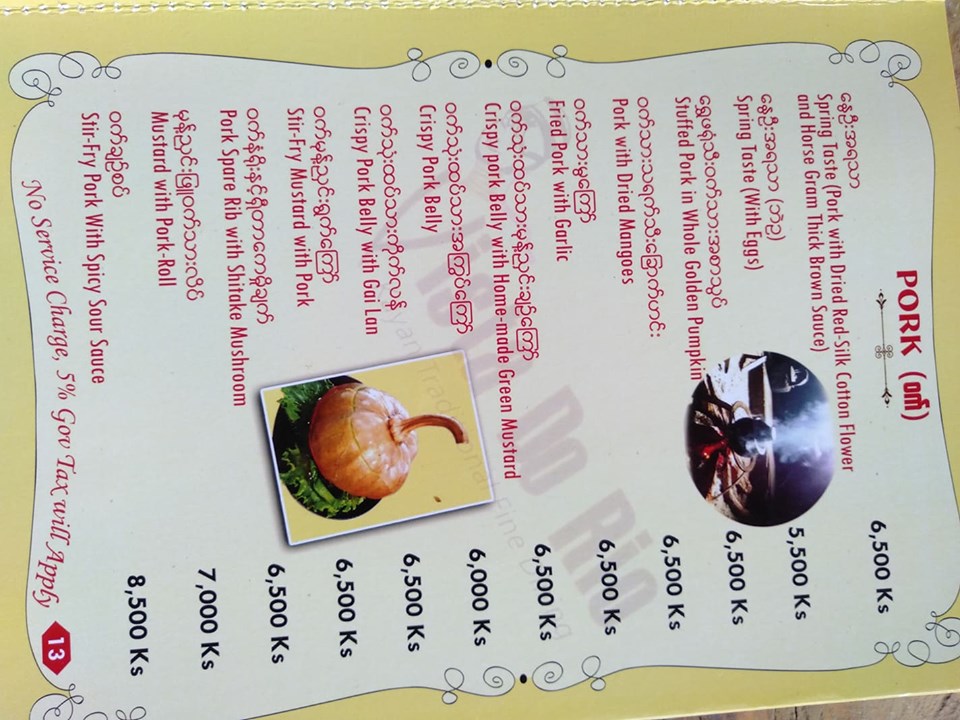 PORK (ဝက်)
နွေဦးအရသာ
Spring Taste (Pork with Dried Red-Silk Cotton Flower
and Horse Gram Thick Brown Sauce)
6,500 Ks
နွေဦးအရသာ (ဘဲဥ)
Spring Taste (With Eggs)
5,500 Ks
ရွှေဖရုံသီးဝက်သားအစာသွပ်
Stuffed Pork in Whole Golden Pumpkin
6,500 Ks
ဝက်သားသရက်သီးခြောက်ဟင်း
Pork with Dried Mangoes
6,500 Ks
ဝက်သားမွှကြော်
Fried Pork with Garlic
6,500 Ks
ဝက်သုံးထပ်သားမုန်ညင်းချဉ်ကြော်
Crispy pork Belly with Home-made Green Mustard
6,500 Ks
ဝက်သုံးထပ်သားအကြွပ်ကြော်
Crispy Pork Belly
6,000 Ks
ဝက်သုံးထပ်သားကိုက်လန်
Crispy Pork Belly with Gai Lan
6,500 Ks
ဝက်မုန်ညင်းရွက်ကြော်
Stir-Fry Mustard with Pork
6,500 Ks
ဝက်နံရိုးနှင့်ရှီတာကေမှိုချက်
Pork Spare Rib with Shitake Mushroom
6,500 Ks
မုန်ညင်းဖြူဝက်သားလိပ်
Mustard with Pork-Roll
7,000 Ks
ဝက်ချဉ်စပ်
Stir-Fry Pork With Spicy Sour Sauce
8,500 Ks
No Service Charge, 5% Gov Tax will Apply
13